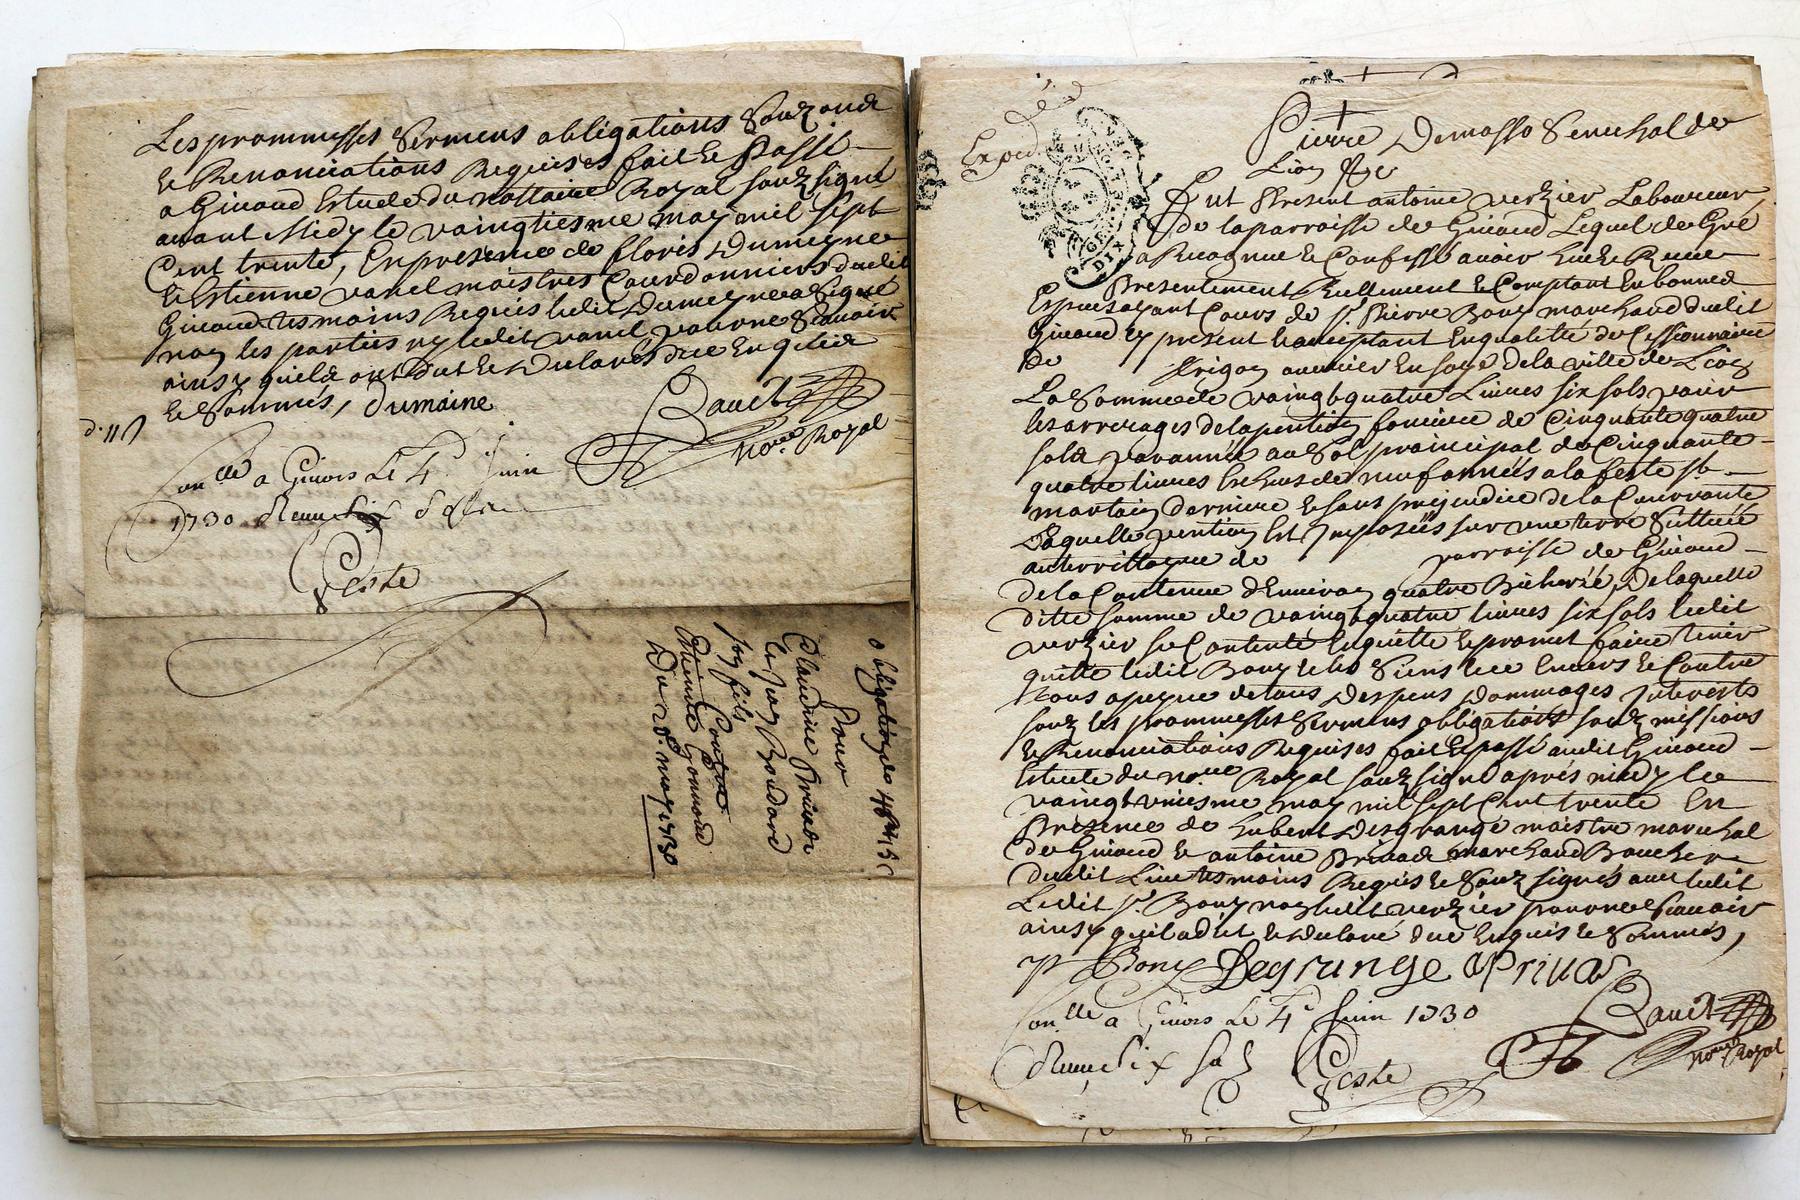 Les prommesses Sermens obligations Souz
et Renonciations Requises fait et Passé
a Givaud Estude du nottaire Royal souz signé
avant Midy le vaingtiesme may mil Sept
Cent trente, En presence de floris Dumeyne
et Estienne vanel maistres Courdonniers dudit
Givaud tesmoins Requis ledit Dumeyne a Signé
non les parties ny ledit vanel pour ne Scavoir
ainsy quils ont dit et Declaré de ce Enquis
et Sommés, Dumaine
Baudt
no.re Royal
a Givors Le 4e Juin
1730 Receu Six sols
Teste
obligation de
Pour
Claudine Privade
et Jean Boudard
son fils
Contre
Estienne Gonnard
Du 20e may 1730
Exped.
Pierre Demasso Senechal de
Lion &c
GE DE LYON
DIX
fut Present antoine verzier Laboureur
de la parroisse de Givaud Lequel de Gré
a Recognu et Confessé avoir Eu et Receu
Presentement Reellement et Comptant En bonnes
Espesses ayant Cours de Sr Pierre Bony marchand dudit
Givaud Cy present et acceptant En qualité de Cessionnaire
de Frigon ouvrier En soye de la ville de Lion
La Somme de vaingt quatre Livres six sols pour
les arrerages de la pention fonciere de Cinquante quatre
sols par année au Sol principal de Cinquante
quatre livres Escheus de neuf années a la feste St
martin derniere et sans prejudice de la Courrante
Laquelle pention Est Imposéés sur une terre Scittuéé
au territtoire de parroisse de Givaud
de la Contenue d'Environ quatre Bicheréé, De laquelle
ditte somme de vaingt quatre livres six sols ledit
verzier se Contente En quitte et promet faire tenir
quitte ledit Bony et les Siens Envers et Contre
tous a peyne de tous Despens Dommages Interests
souz les prommesses Sermens obligations soubzmissions
et Renonciations Requises fait et passé audit Givaud
Estude du no.re Royal souz signé aprés midy le
vaingt uniesme may mil sept Cent trente En
Presence de hubert Desgrange maistre marechal
de Givaud et antoine Privade marchand Boucher
dudit Lieu tesmoins Requis et Souz signés avec ledit
Ledit Sr Bony non ledit verzier pour ne Scavoir
ainsy quil a dit et Declaré de ce Enquis et Sommés,
P Bony Degrange A Privad
Baudt
a Givors Le 4e Juin 1730
no.re Royal
Receu Six sols
Teste